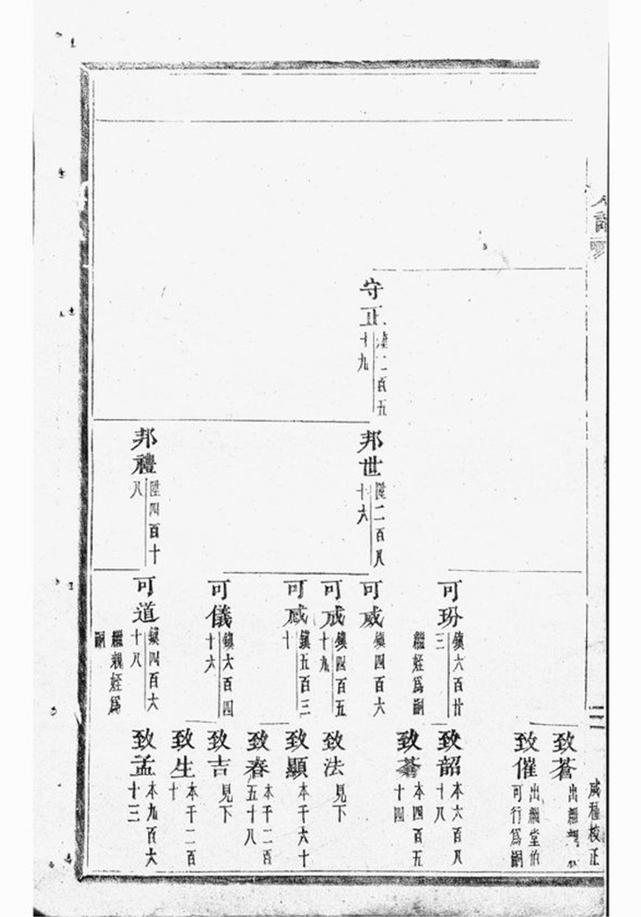 守正
二百五十九
邦世
陞二百八十六
邦禮
陞四百十八
可玢
鎮六百廿三
繼姪爲嗣
可威
鎮四百六
可成
鎮四百五十九
鎮五百三十
可儀
鎮六百四十六
可道
鎮四百六十八
繼親姪爲嗣
致蒼
出繼
致催
出繼堂伯可行爲嗣
致韶
本六百八十八
本四百五十四
致法
見下
致顯
本千六十
致春
本千二百五十八
致吉
見下
致生
本千二百十
致孟
本九百六十三
校正